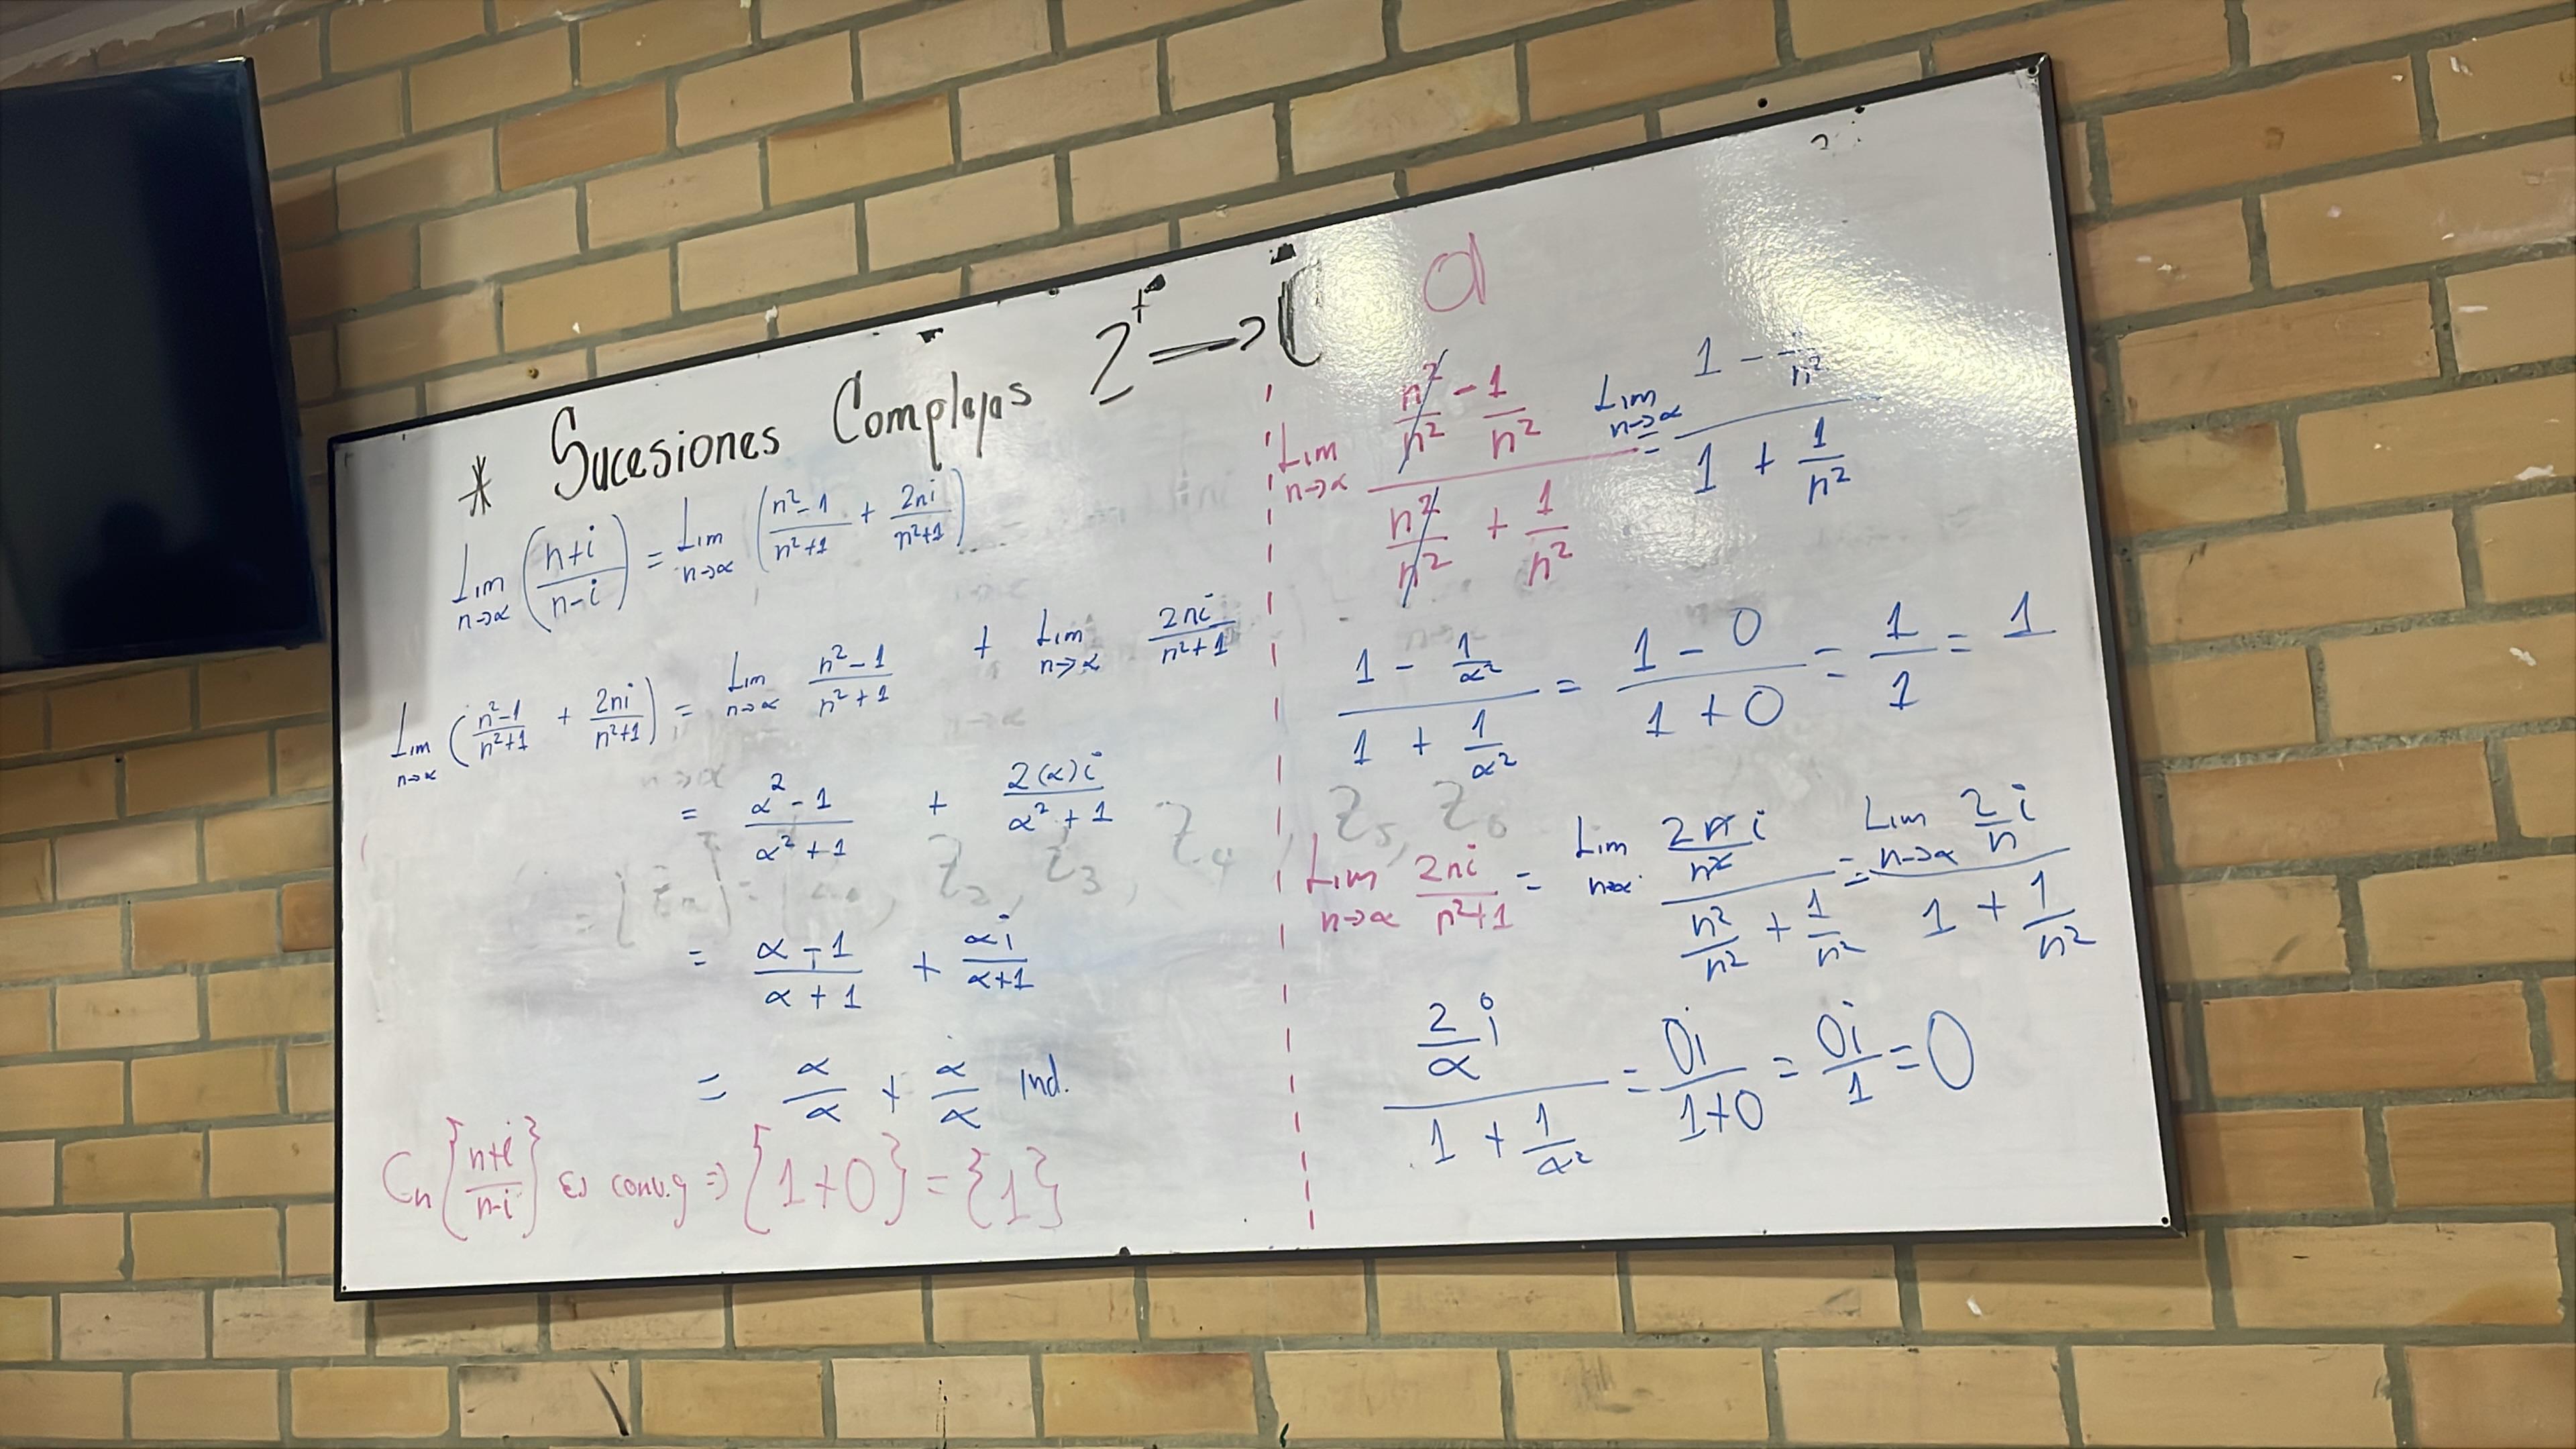 * Sucesiones Complejas Z⁺ → ℂ
Lim n→∝ (n+i / n-i) = Lim n→∝ (n²-1 / n²+1 + 2ni / n²+1)
Lim n→∝ (n²-1 / n²+1 + 2ni / n²+1) = Lim n→∝ n²-1 / n²+1 + Lim n→∝ 2ni / n²+1
= ∝²-1 / ∝²+1 + 2(∝)i / ∝²+1
= ∝-1 / ∝+1 + ∝i / ∝+1
= ∝/∝ + ∝/∝ Ind.
Cn {n+i / n-i} es conv.g ⇒ {1+0} = {1}
a
Lim n→∝ (n²/n² - 1/n²) / (n²/n² + 1/n²) = Lim n→∝ (1 - 1/n²) / (1 + 1/n²)
(1 - 1/∝²) / (1 + 1/∝²) = (1-0) / (1+0) = 1/1 = 1
Z₂, Z₃, Z₄, Z₅, Z₆
Lim n→∝ 2ni / n²+1 = Lim n→∝ (2ni / n²) / (n²/n² + 1/n²) = Lim n→∝ (2/n i) / (1 + 1/n²)
(2/∝ i) / (1 + 1/∝²) = 0i / 1+0 = 0i / 1 = 0